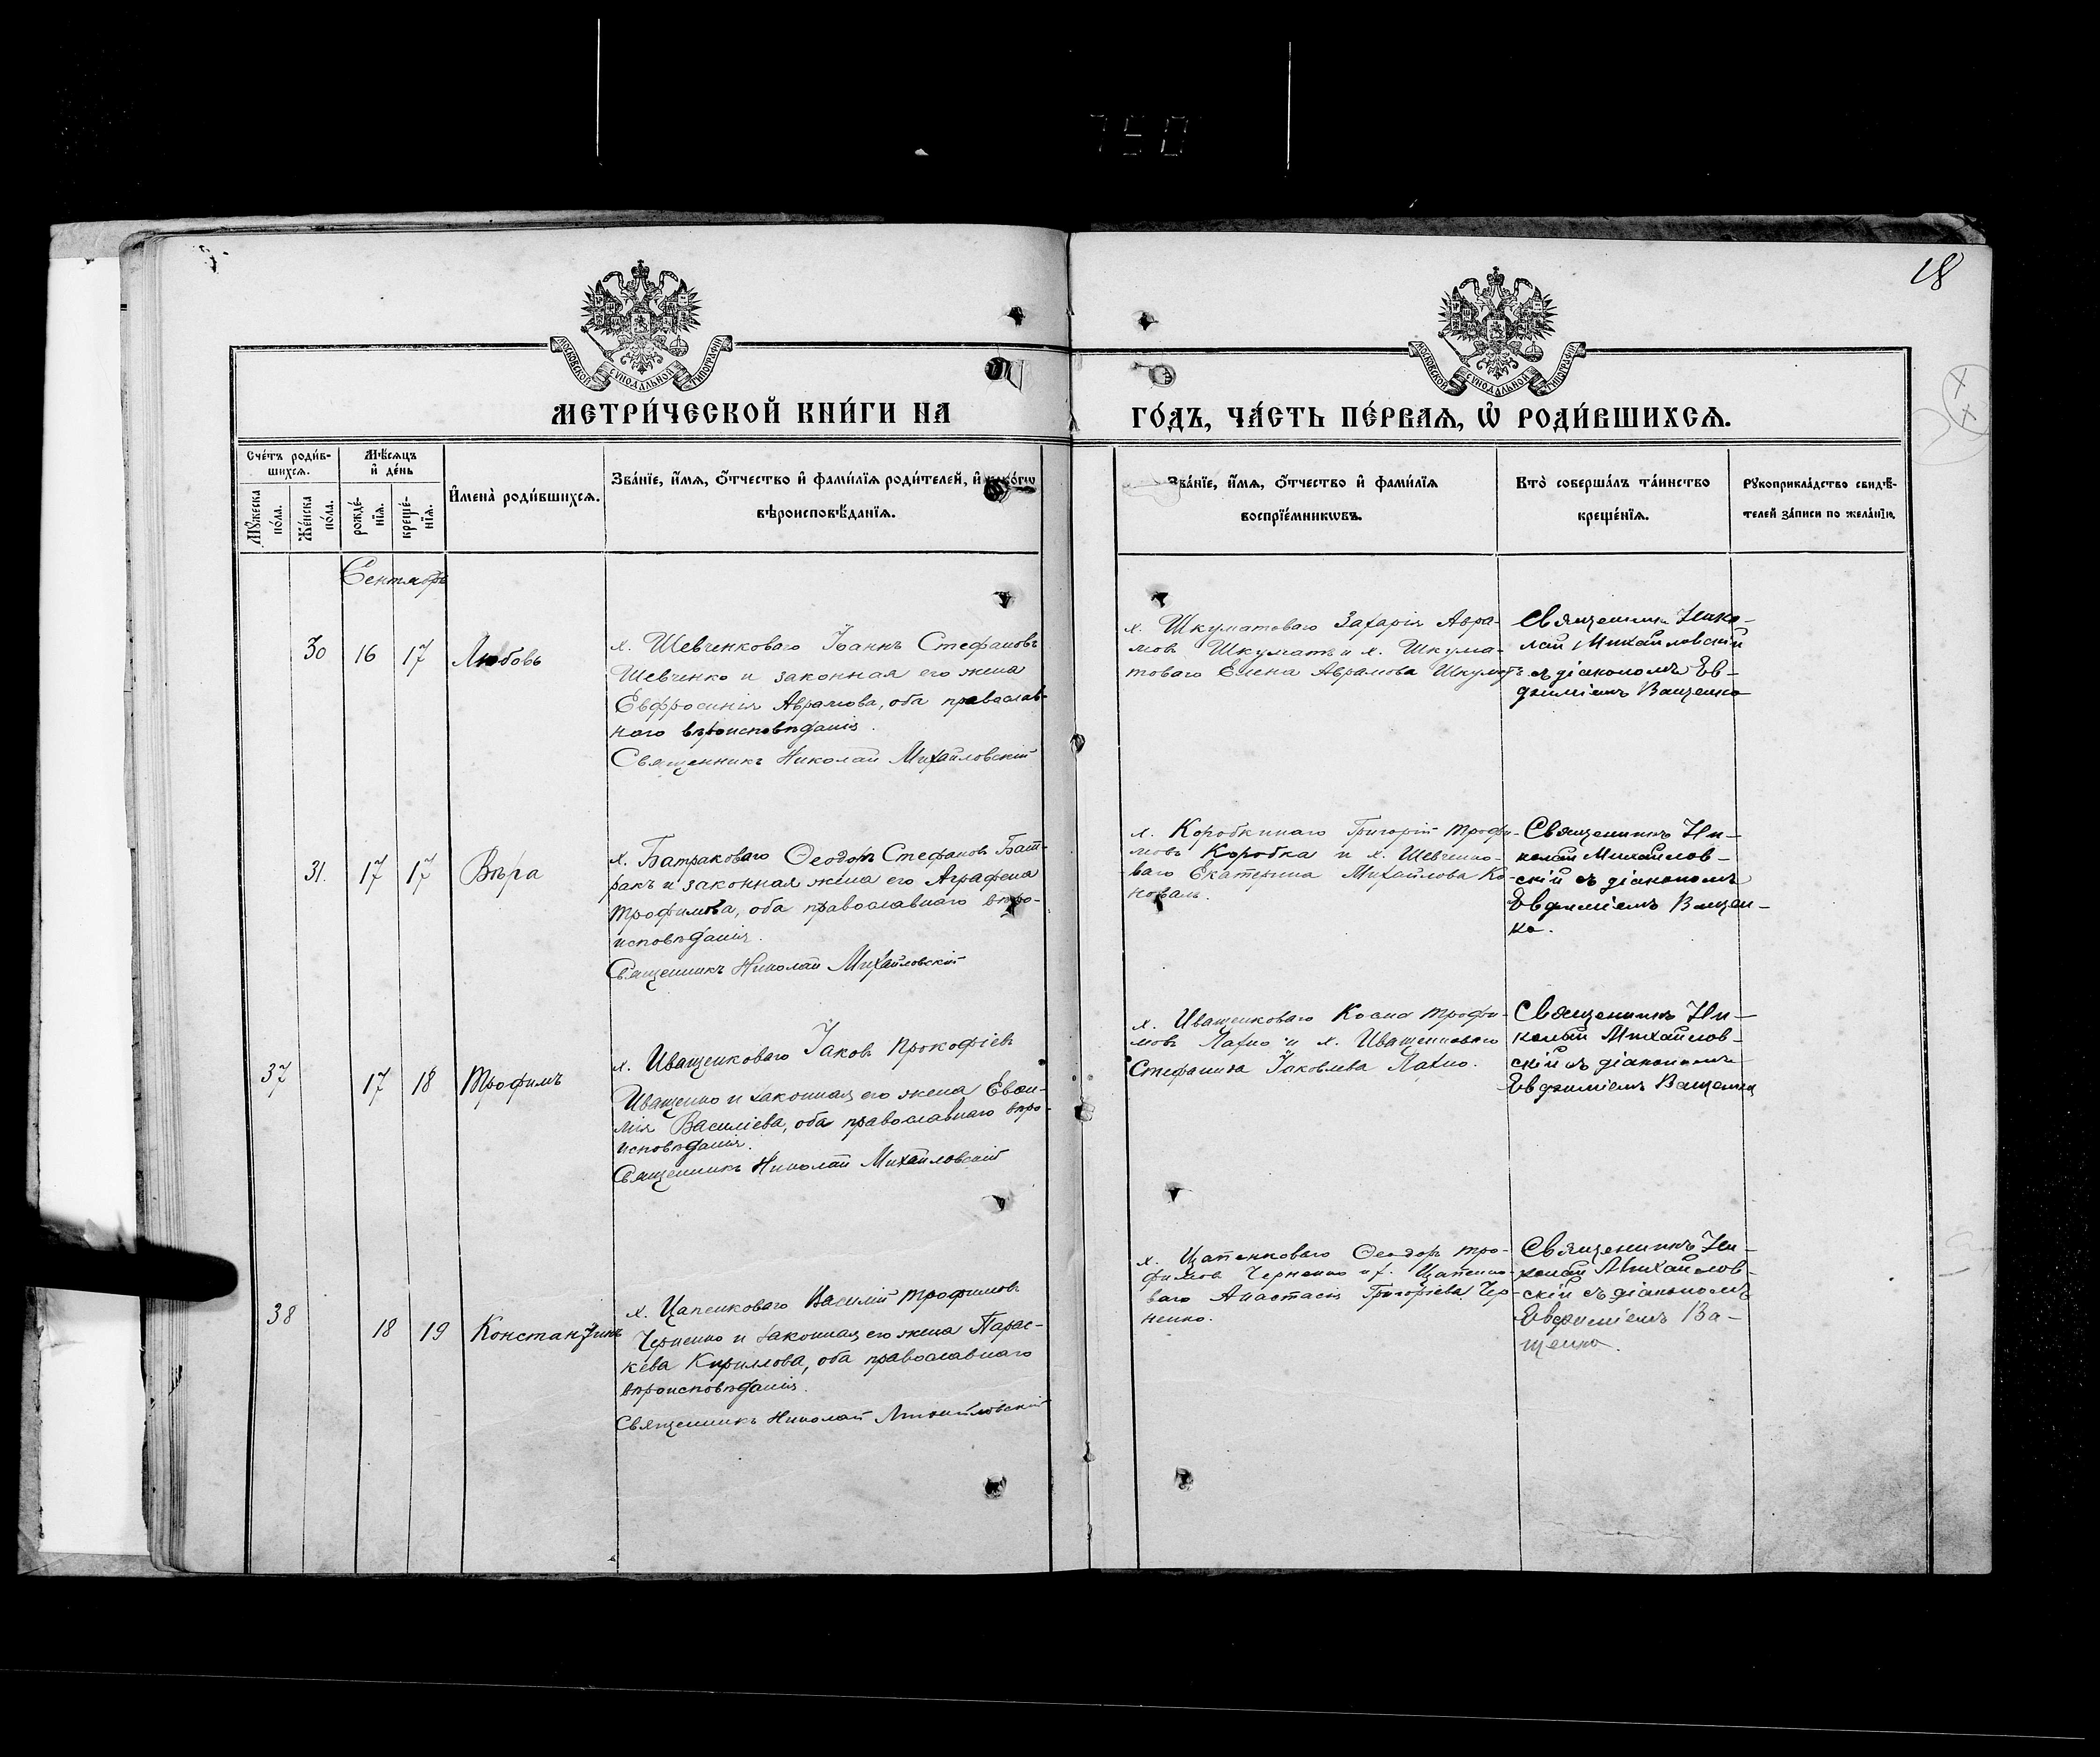 18
МОСКОВСКОЙ СѴНОДАЛЬНОЙ ТИПОГРАФІИ
МОСКОВСКОЙ СѴНОДАЛЬНОЙ ТИПОГРАФІИ
МЕТРИ́ЧЕСКОЙ КНИ́ГИ НА
ГО́ДЪ, ЧА́СТЬ ПЕ́РВАѦ, Ѿ РОДИ́ВШИХСѦ.
Сче́тъ роди́в-
шихсѧ.
Мꙋ́жеска по́ла.
Же́нска по́ла.
Мѣ́сѧцъ и҆ де́нь
рожде́-нїѧ.
креще́-нїѧ.
И҆мена̀ роди́вшихсѧ.
Зва́нїе, и҆́мѧ, ѻ҆́тчество и҆ фами́лїѧ роди́телей, и҆ како́гѡ
вѣроисповѣ́данїѧ.
Зва́нїе, и҆́мѧ, ѻ҆́тчество и҆ фами́лїѧ
воспрїе́мникѡвъ.
Кто̀ соверша́лъ та́инство
креще́нїѧ.
Рꙋкоприкла́дство свидѣ́-
телей за́писи по жела́нїю.
Сентябрь
30 16 17 Любовь
х. Шевченкового Іоаннъ Стефановъ
Шевченко и законная его жена
Евфросинія Аврамова, оба православ-
наго вѣроисповѣданія.
Священникъ Николай Михайловскій
х. Шкуматоваго Захарія Авра-
мовъ Шкуматъ и х. Шкума-
товаго Елена Аврамова Шкуматъ.
Священникъ Нико-
лай Михайловскій
съ діакономъ Ев-
фиміемъ Ващенко
31. 17 17 Вѣра
х. Батраковаго Ѳеодоръ Стефановъ Бат-
ракъ и законная жена его Аграфена
Трофимова, оба православнаго вѣро-
исповѣданія.
Священникъ Николай Михайловскій
х. Коробкинаго Григорій Трофи-
мовъ Коробка и х. Шевченко-
ваго Екатерина Михайлова Ко-
коваль.
Священникъ Ни-
колай Михайлов-
скій съ діакономъ
Евфиміемъ Ващен-
ко.
37 17 18 Трофимъ
х. Иващенковаго Іаковъ Прокофіевъ
Иващенко и законная его жена Евфи-
мія Василіева, оба православнаго вѣро-
исповѣданія.
Священникъ Николай Михайловскій
х. Иващенковаго Косма Трофи-
мовъ Лахно и х. Иващенковаго
Стефанида Іаковлева Лахно.
Священникъ Ни-
колай Михайлов-
скій съ діакономъ
Евфиміемъ Ващенко
38 18 19 Константинъ
х. Цапенковаго Василій Трофимовъ
Черненко и законная его жена Парас-
кева Кириллова, оба православнаго
вѣроисповѣданія.
Священникъ Николай Михайловскій
х. Цапенковаго Ѳеодоръ Тро-
фимовъ Черненко и х. Цапенко-
ваго Анастасія Григоріева Чер-
ненко.
Священникъ Ни-
колай Михайлов-
скій съ діакономъ
Евфиміемъ Ва-
щенко.